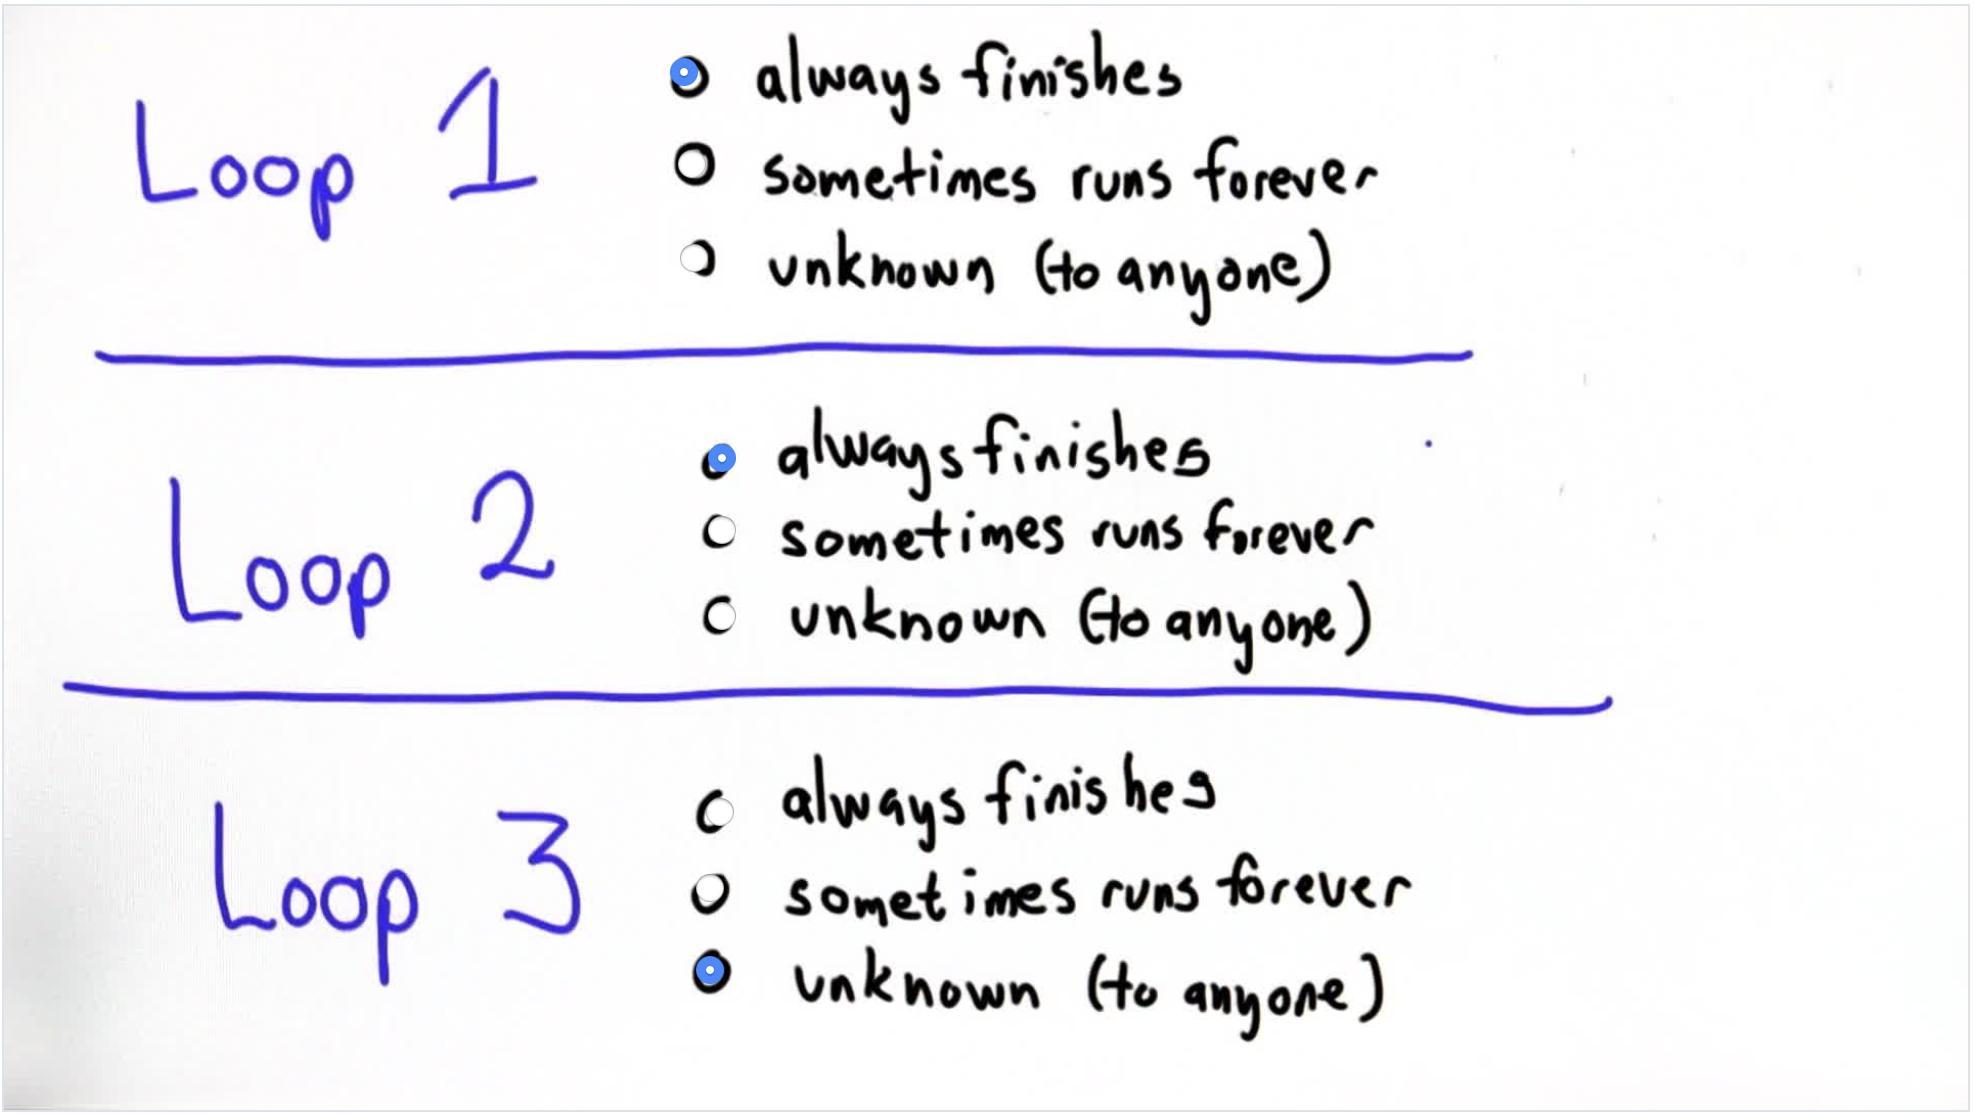 Loop 1
always finishes
sometimes runs forever
unknown (to anyone)
Loop 2
always finishes
sometimes runs forever
unknown (to anyone)
Loop 3
always finishes
sometimes runs forever
unknown (to anyone)